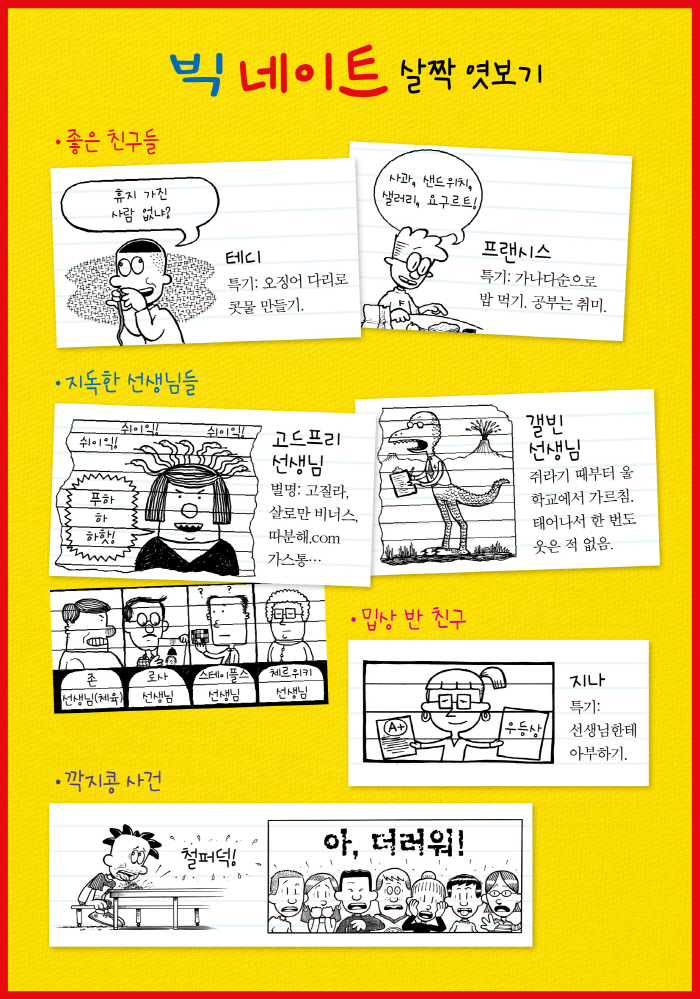 빅 네이트 살짝 엿보기
• 좋은 친구들
휴지 가진
사람 없냐?
테디
특기: 오징어 다리로
콧물 만들기.
사과, 샌드위치,
샐러리, 요구르트!
프랜시스
특기: 가나다순으로
밥 먹기. 공부는 취미.
• 지독한 선생님들
쉬이익!
쉬이익!
쉬이익!
푸하
하
하핫!
고드프리
선생님
별명: 고질라,
살로만 비너스,
따분해.com
가스통…
갤빈
선생님
쥐라기 때부터 울
학교에서 가르침.
태어나서 한 번도
웃은 적 없음.
? ?
존
선생님(체육)
로사
선생님
스테이플스
선생님
체르위키
선생님
• 밉상 반 친구
A+
우등상
지나
특기:
선생님한테
아부하기.
• 깍지콩 사건
철퍼덕!
아, 더러워!